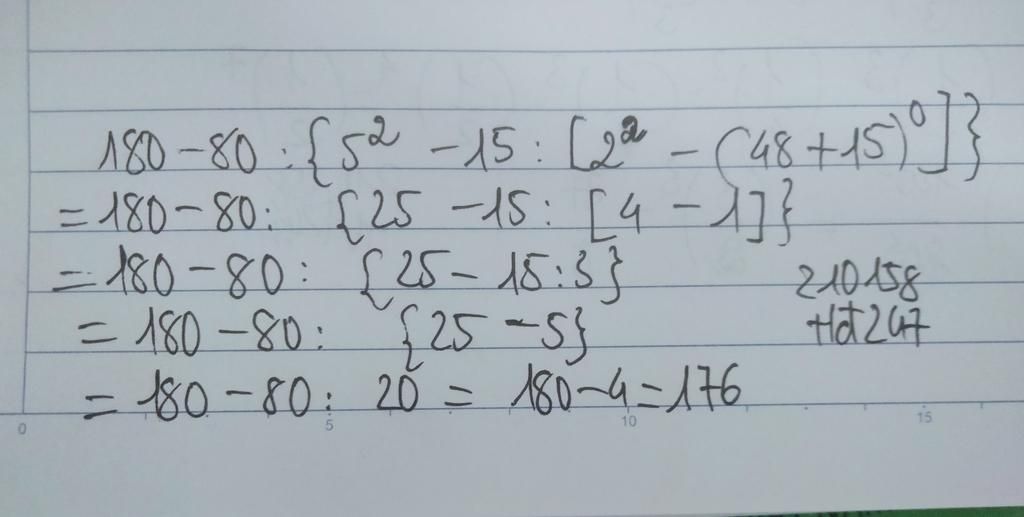 180 - 80 : {5² - 15 : [2² - (48 + 15)⁰]}
= 180 - 80 : {25 - 15 : [4 - 1]}
= 180 - 80 : {25 - 15 : 3}
210158
= 180 - 80 : {25 - 5}
Hđ247
= 180 - 80 : 20 = 180 - 4 = 176
0 5 10 15